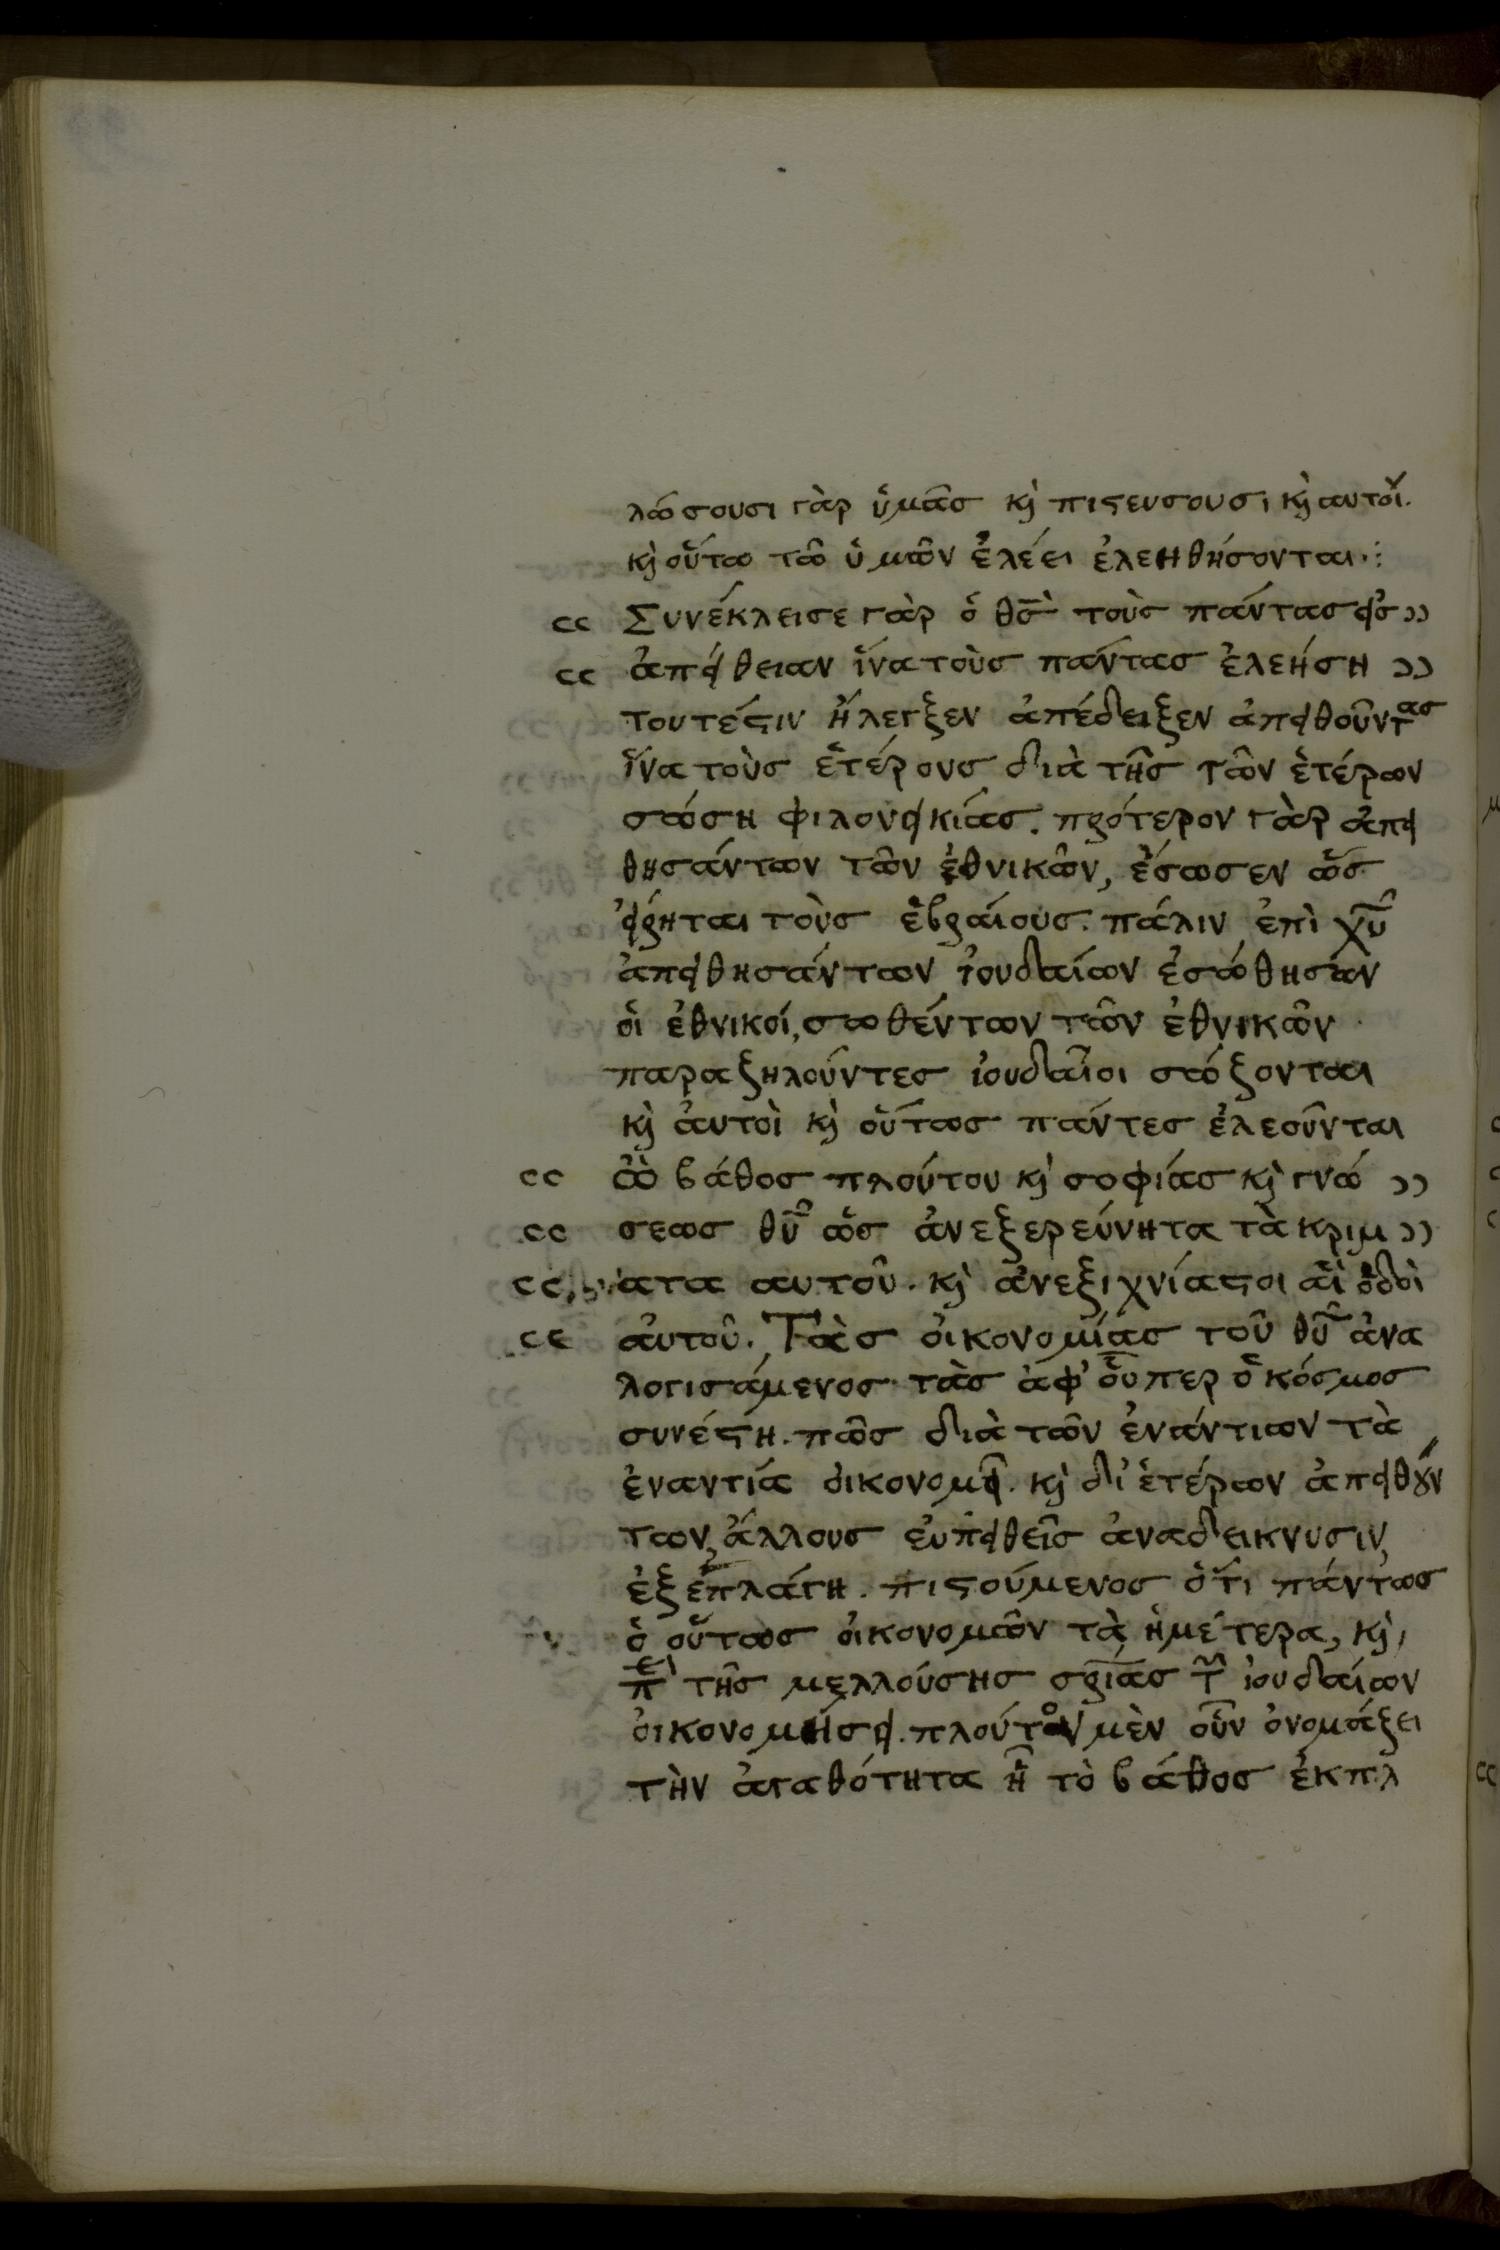 λώσουσι γὰρ ὑμᾶς κὶ πιστευσουσι κὶ αυτοί.
κὶ οὕτω τῶ ὑμῶν ἐλέει ἐλεηθήσονται⁖
cc Συνέκλεισε γὰρ ὁ θς̅ τοὺς πάντας εἰς ))
cc ἀπείθειαν ἵνα τοὺς πάντας ἐλεήση ))
τουτέστιν ἤλεγξεν ἀπέδειξεν ἀπειθοῦντας
ἵνα τοὺς ἑτέρους διὰ τῆς τῶν ἑτέρων
σώση φιλονεικίας. πρότερον γὰρ ἀπει
θησάντων τῶν ἐθνικῶν, ἔσωσεν ὡς
εἴρηται τοὺς ἑβραίους. πάλιν ἐπὶ χυ̅
ἀπειθησάντων ἰουδαίων ἐσώθησαν
οἱ ἐθνικοί, σωθέντων τῶν ἐθνικῶν
παραζηλοῦντες ἰουδαῖοι σώζονται
κὶ ἀυτοὶ κὶ οὕτως πάντες ἐλεοῦνται
cc ὢ βάθος πλούτου κὶ σοφίας κὶ γνώ ))
cc σεως θυ̅ ὡς ἀνεξερεύνητα τὰ κριμ ))
cc ατα αυτοῦ. κὶ ἀνεξιχνίαστοι αἱ ὁδοὶ
cc αὐτοῦ. Τὰς οἰκονομίας τοῦ θυ̅ ἀνα
λογισάμενος τὰς ἀφ' οὗπερ ὁ κόσμος
συνέστη. πῶς διὰ τῶν ἐνάντιων τὰ
ἐναντία οἰκονομεῖ. κὶ δι' ἑτέρων ἀπειθούν
των, ἄλλους εὐπειθεῖς ἀναδεικνυσιν,
ἐξεπλάγη. πιστούμενος ὅτι πάντως
ὁ οὕτως οἰκονομῶν τὰ ἡμέτερα, κὶ
π̅ε τῆς μελλούσης σρ̅ίας τ̅ ἰουδαίων
οἰκονομήσει. πλούτον μὲν οὖν ὀνομάζει
τὴν ἀγαθότητα ἧ τὸ βάθος ἐκπλ